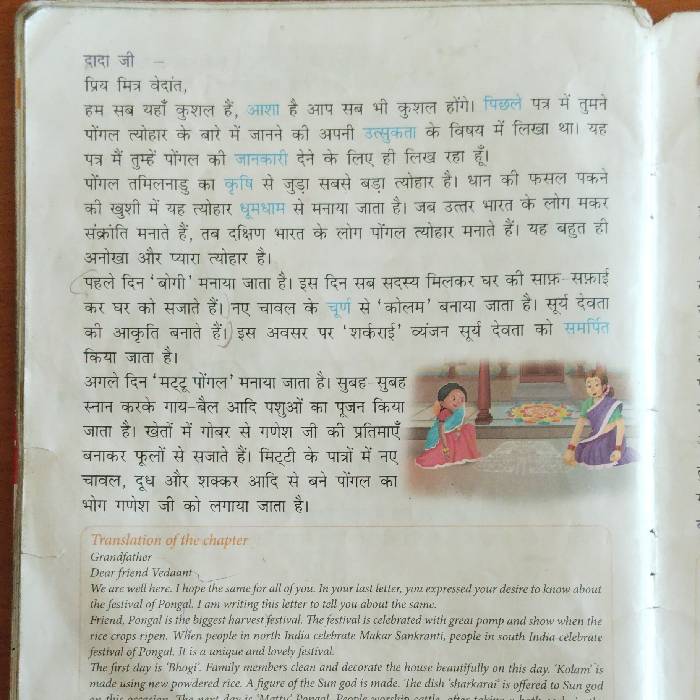 दादा जी –
प्रिय मित्र वेदांत,
हम सब यहाँ कुशल हैं, आशा है आप सब भी कुशल होंगे। पिछले पत्र में तुमने
पोंगल त्योहार के बारे में जानने की अपनी उत्सुकता के विषय में लिखा था। यह
पत्र मैं तुम्हें पोंगल की जानकारी देने के लिए ही लिख रहा हूँ।
पोंगल तमिलनाडु का कृषि से जुड़ा सबसे बड़ा त्योहार है। धान की फसल पकने
की खुशी में यह त्योहार धूमधाम से मनाया जाता है। जब उत्तर भारत के लोग मकर
संक्रांति मनाते हैं, तब दक्षिण भारत के लोग पोंगल त्योहार मनाते हैं। यह बहुत ही
अनोखा और प्यारा त्योहार है।
पहले दिन 'बोगी' मनाया जाता है। इस दिन सब सदस्य मिलकर घर की साफ़-सफ़ाई
कर घर को सजाते हैं। नए चावल के चूर्ण से 'कोलम' बनाया जाता है। सूर्य देवता
की आकृति बनाते हैं। इस अवसर पर 'शर्कराई' व्यंजन सूर्य देवता को समर्पित
किया जाता है।
अगले दिन 'मट्टू पोंगल' मनाया जाता है। सुबह-सुबह
स्नान करके गाय-बैल आदि पशुओं का पूजन किया
जाता है। खेतों में गोबर से गणेश जी की प्रतिमाएँ
बनाकर फूलों से सजाते हैं। मिट्टी के पात्रों में नए
चावल, दूध और शक्कर आदि से बने पोंगल का
भोग गणेश जी को लगाया जाता है।
Translation of the chapter
Grandfather
Dear friend Vedaant
We are well here. I hope the same for all of you. In your last letter, you expressed your desire to know about
the festival of Pongal. I am writing this letter to tell you about the same.
Friend, Pongal is the biggest harvest festival. The festival is celebrated with great pomp and show when the
rice crops ripen. When people in north India celebrate Makar Sankranti, people in south India celebrate
festival of Pongal. It is a unique and lovely festival.
The first day is 'Bhogi'. Family members clean and decorate the house beautifully on this day. 'Kolam' is
made using new powdered rice. A figure of the Sun god is made. The dish 'sharkarai' is offered to Sun god
on this occasion. The next day is 'Mattu' Pongal. People worship cattle, after taking a bath